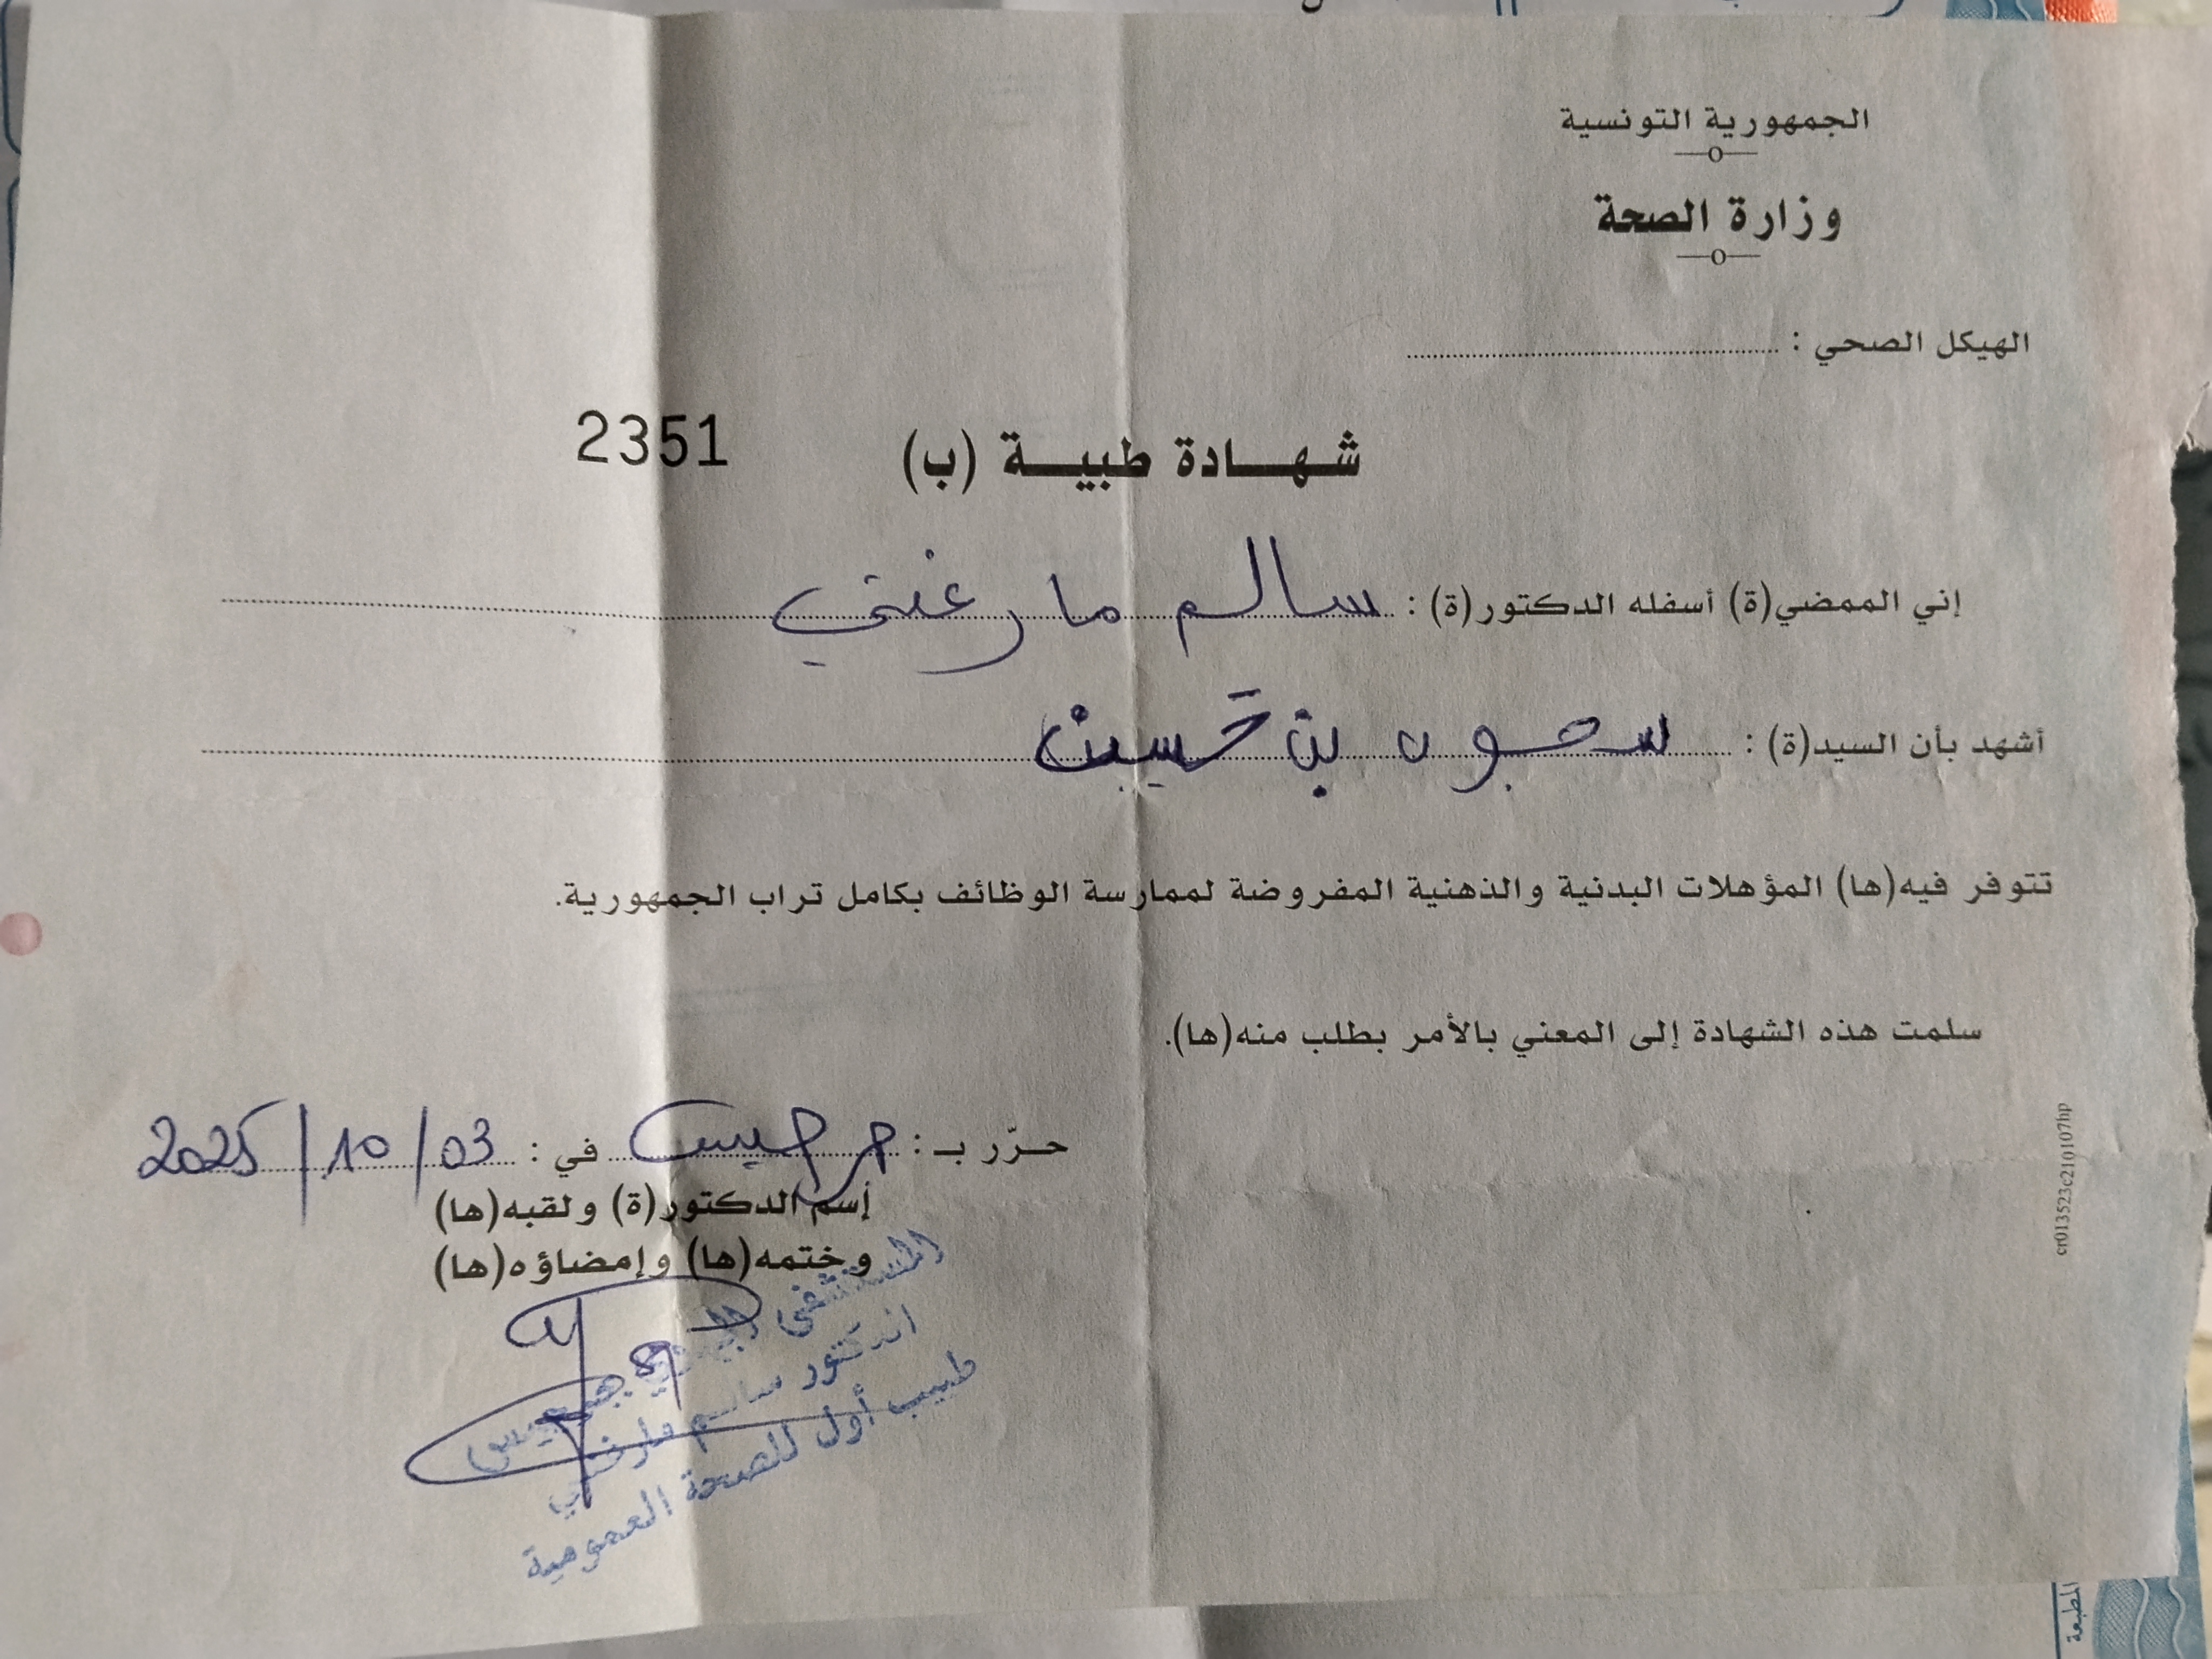 الجمهورية التونسية
وزارة الصحة
الهيكل الصحي :
شهادة طبية (ب)
2351
إني الممضي(ة) أسفله الدكتور(ة) : سالم مارغني
أشهد بأن السيد(ة) : بن حسين
تتوفر فيه(ها) المؤهلات البدنية والذهنية المفروضة لممارسة الوظائف بكامل تراب الجمهورية.
سلمت هذه الشهادة إلى المعني بالأمر بطلب منه(ها).
حرّر بـ : جرجيس في : 03/10/2025
إسم الدكتور(ة) ولقبه(ها)
وختمه(ها) وإمضاؤه(ها)
المستشفى الجهوي بجرجيس
الدكتور سالم مارغني
طبيب أول للصحة العمومية
cr013523c210107hp
المطبعة